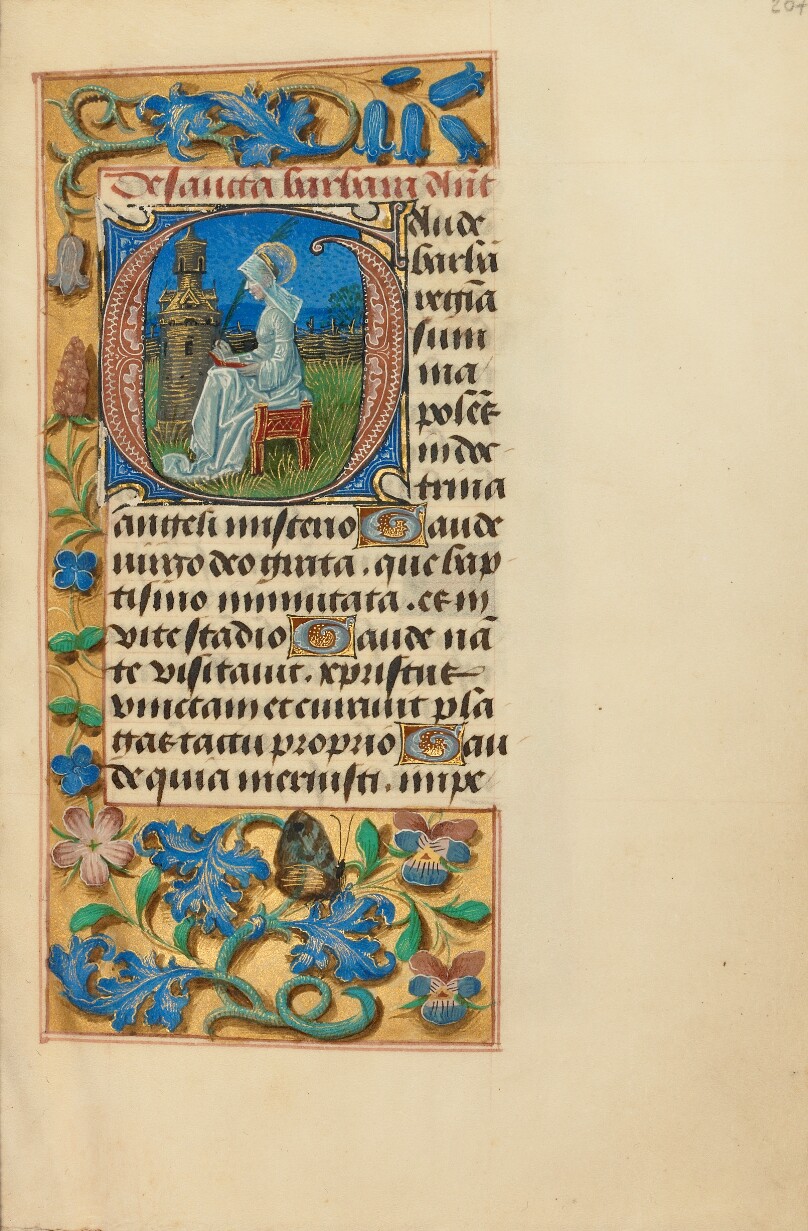 204
De sancta barbara Ant
Gaude
barba
regia
sum
ma
pollēs
in doc
trina
angeli misterio Gaude
uirgo deo grata . que bap
tismo immitata . es in
vite stadio Gaude nā
te visitauit . xpristus
vinctam et curauit pla
gas tactu proprio Gau
de quia meruisti . impe